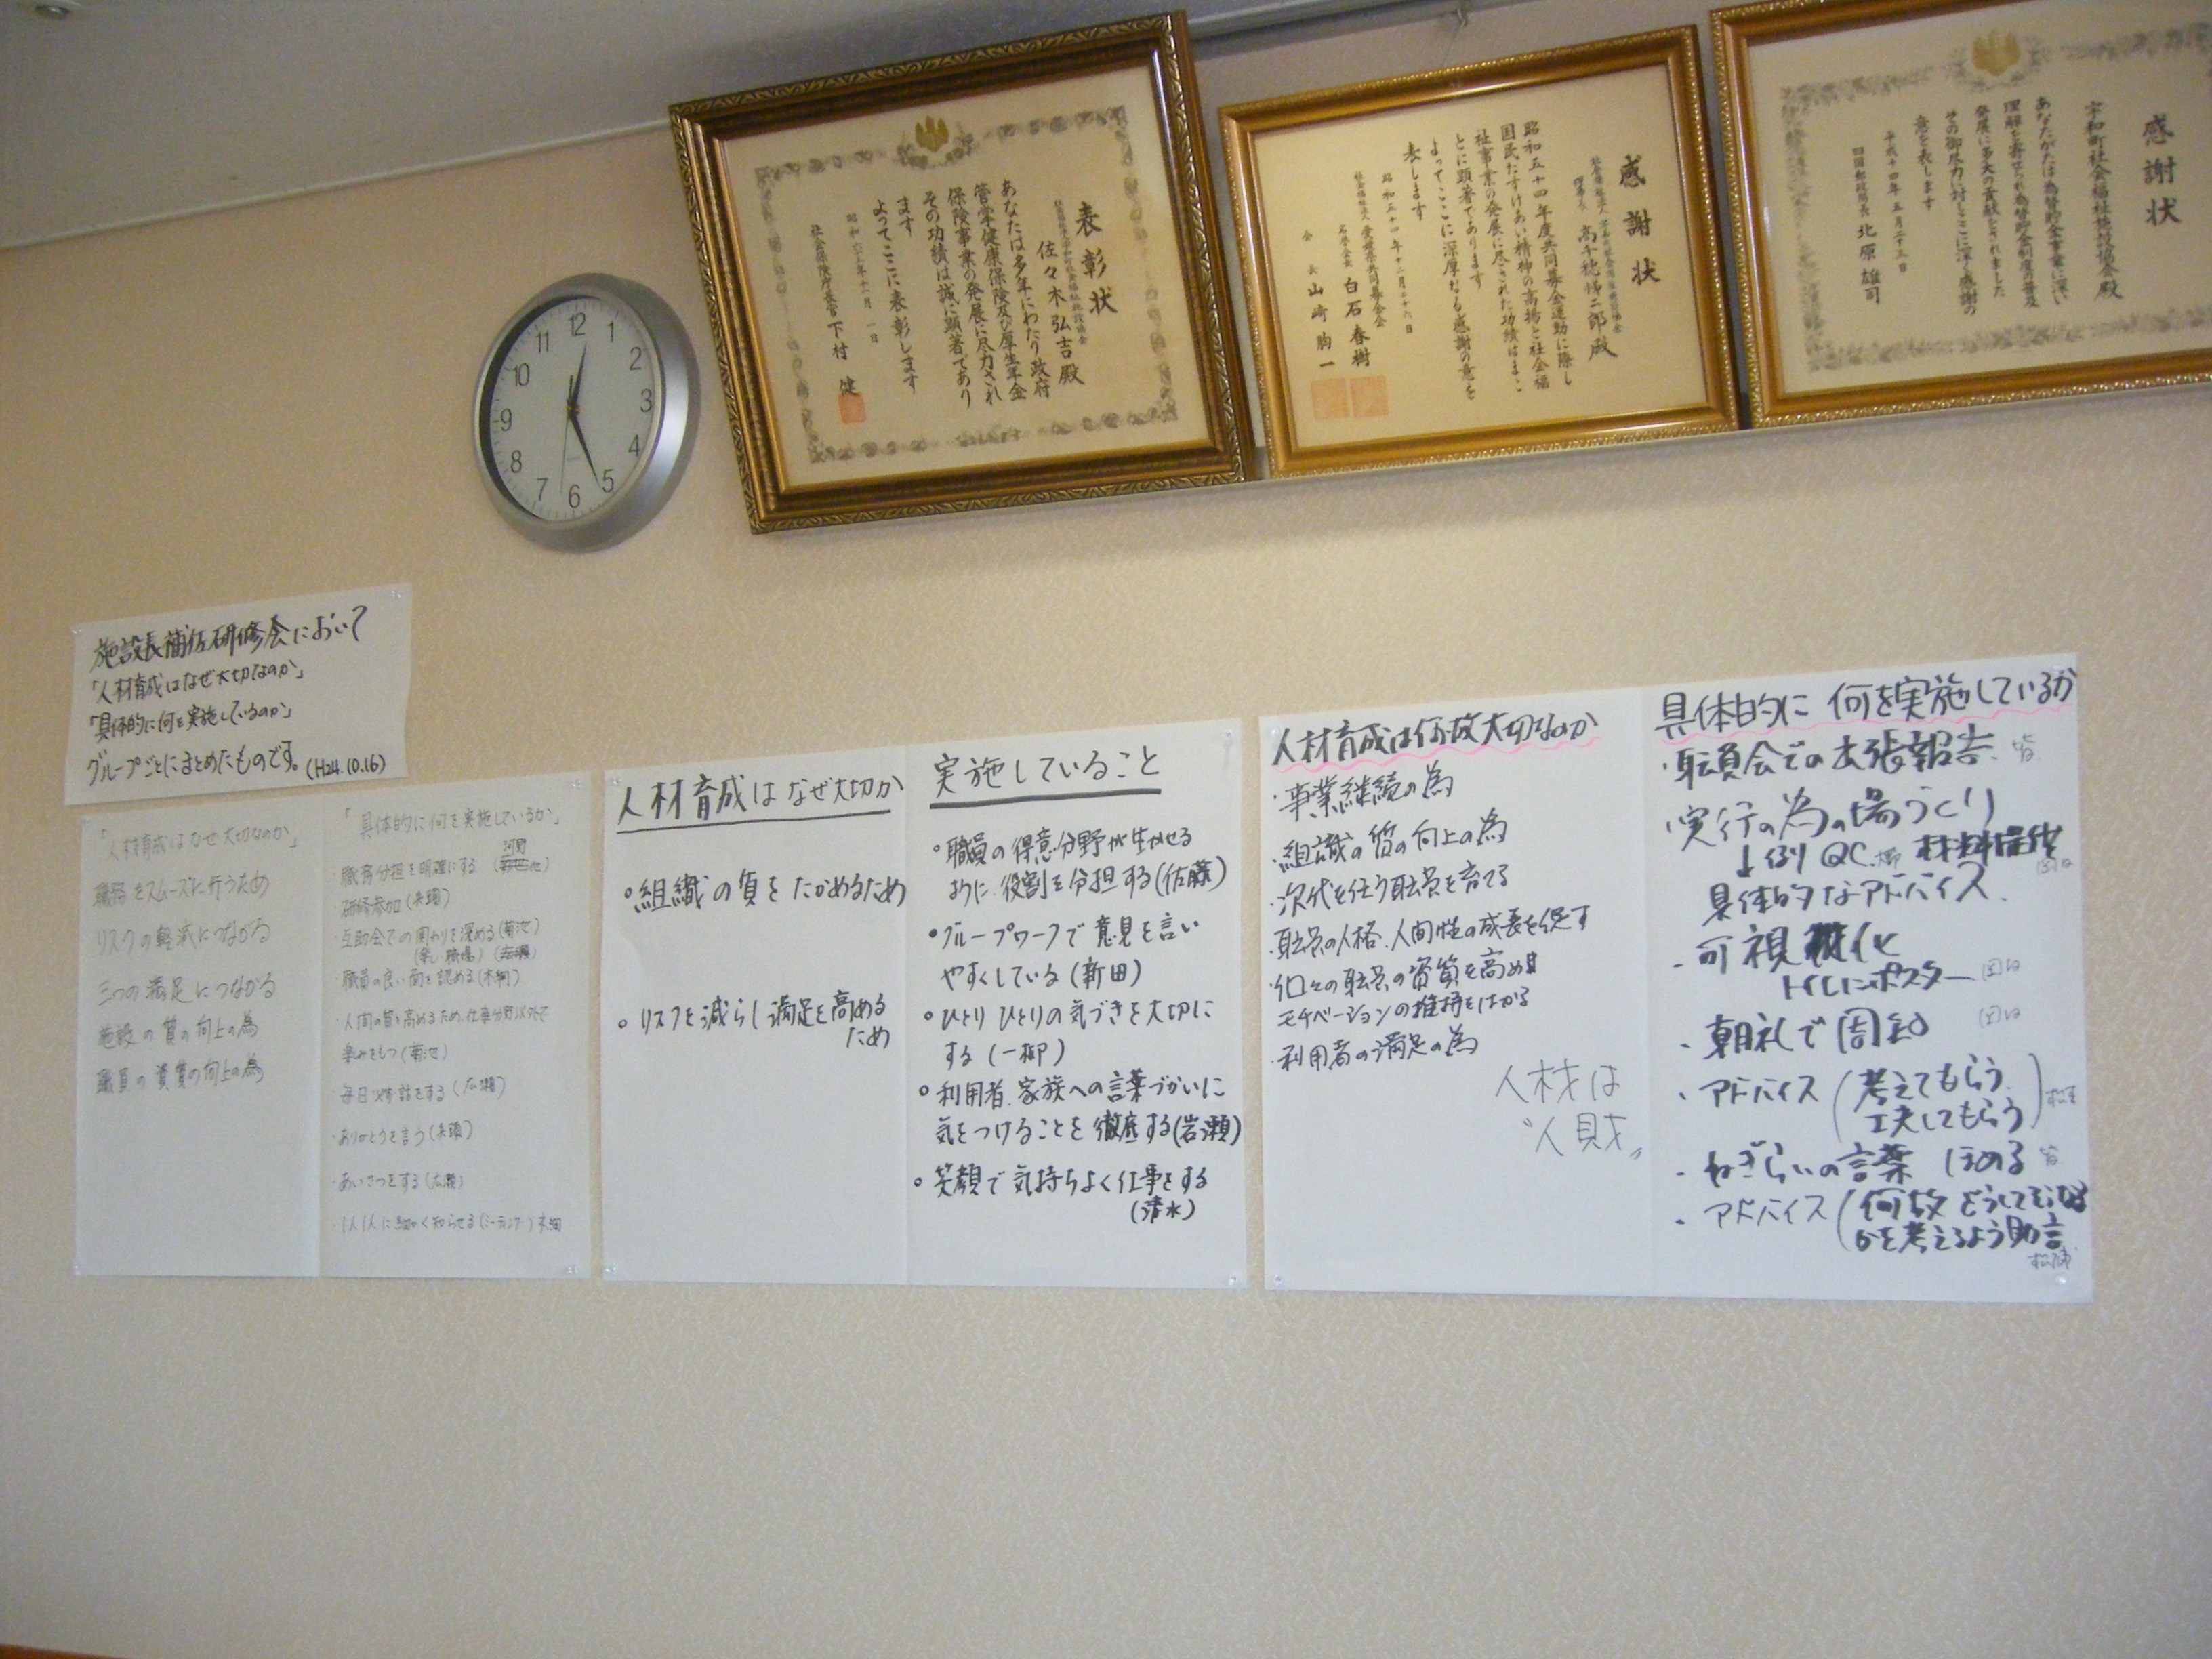 表彰状
佐々木弘吉殿
あなたは多年にわたり政府
管掌健康保険及び厚生年金
保険事業の発展に尽力され
その功績は誠に顕著であり
ます
よってここに表彰します
昭和六十三年十一月一日
社会保険庁長官 下村 健
感謝状
昭和五十四年度共同募金運動に際し
国民たすけあい精神の高揚と社会福
祉事業の発展に尽された功績はまこ
とに顕著であります
よってここに深厚なる感謝の意を
表します
昭和五十四年十二月二十六日
社会福祉法人 愛媛県共同募金会
名誉会長 白石春樹
会長 山崎
感謝状
宇和町社会福祉施設協会殿
あなたがたは為替貯金事業に深い
理解を寄せられ為替貯金制度の普及
発展に多大の貢献をされました
その御尽力に対しここに深く感謝の
意を表します
平成十四年五月二十三日
四国郵政局長 北原雄司
12
1
2
3
4
5
6
7
8
9
10
11
施設長補佐研修会において
「人材育成はなぜ大切なのか」
「具体的に何を実施しているのか」
グループごとにまとめたものです。(H24.10.16)
「人材育成はなぜ大切なのか」
職務をスムーズに行うため
リスクの軽減につながる
三つの満足につながる
施設の質の向上の為
職員の資質の向上の為
「具体的に何を実施しているか」
・職務分担を明確にする
・研修参加
・互助会での関わりを深める(菊池)
・職員の良い面を認める
・人間の質を高めるため、仕事分野以外で
楽みをもつ(菊池)
・毎日 話をする(広瀬)
・ありがとうを言う
・あいさつをする(広瀬)
・1人1人に細かく知らせる(ミーティング)
人材育成はなぜ大切か
○組織の質をたかめるため
○リスクを減らし満足を高める
ため
実施していること
○職員の得意分野が生かせる
ように役割を分担する(佐藤)
○グループワークで意見を言い
やすくしている(新田)
○ひとりひとりの気づきを大切に
する(一柳)
○利用者、家族への言葉づかいに
気をつけることを徹底する(岩瀬)
○笑顔で気持ちよく仕事をする
(清水)
人材育成は何故大切なのか
・事業継続の為
・組識の質の向上の為
・次代を任う職員を育てる
・職員の人格、人間性の成長を促す
・個々の職員の資質を高め
モチベーションの維持をはかる
・利用者の満足の為
人材は
“人財”
具体的に 何を実施しているか
・職員会での出張報告
・実行の為の場づくり
↓例 QC
具体的なアドバイス
・可視化
トイレにポスター
・朝礼で周知
・アドバイス(考えてもらう
工夫してもらう)
・ねぎらいの言葉 ほめる
・アドバイス(何故どうしてそうなる
かを考えるよう助言